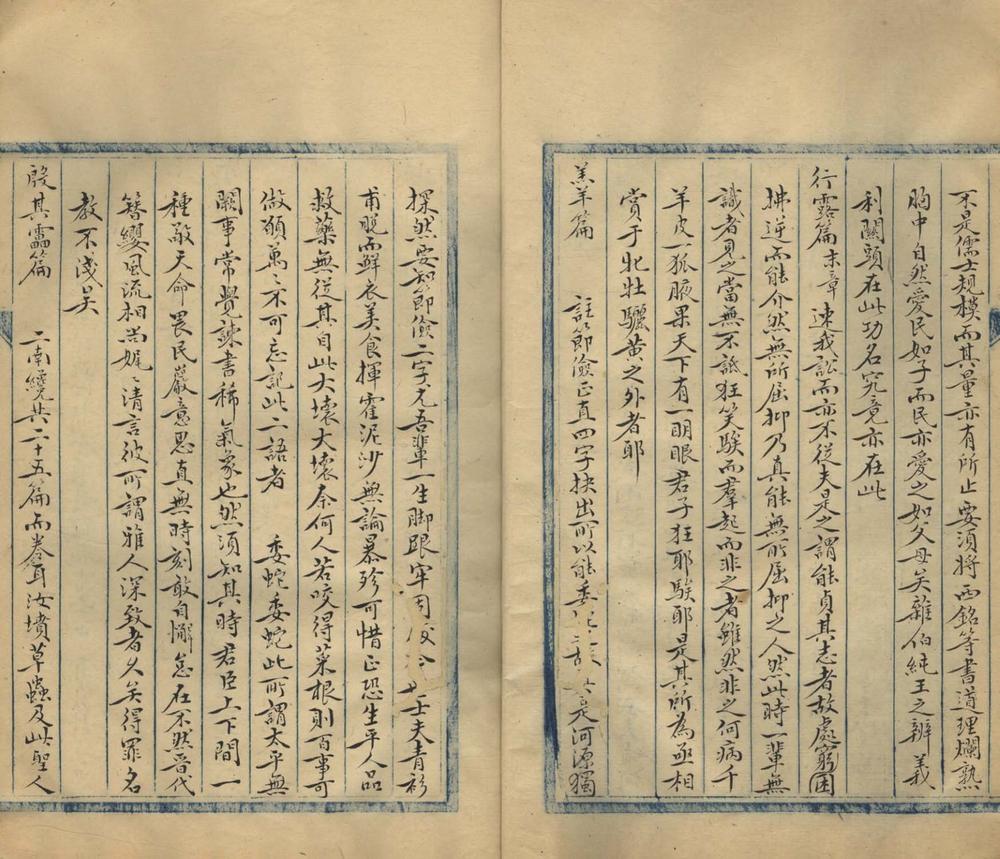 不是儒士規模而其量亦有所止要須將西銘等書道理爛熟
胸中自然愛民如子而民亦愛之如父母矣雜伯純王之辨義
利關頭在此功名究竟亦在此
行露篇末章速我訟而亦不從夫是之謂能貞其志者故處窮困
拂逆而能介然無所屈抑乃真能無所屈抑之人然此時一輩無
識者見之當無不詆狂笑騃而羣起而非之者雖然非之何病千
羊皮一狐腋果天下有一明眼君子狂耶騃耶是其所為亟相
賞于牝牡驪黃之外者耶
羔羊篇 註節儉正直四字抉出所以能委 故 是河源獨
探然要知節儉二字尤吾輩一生脚跟牢固 士夫青衫
甫脫而鮮衣美食揮霍泥沙無論暴殄可惜正恐生平人品
救藥無從其自此大壞大壞奈何人若咬得菜根則百事可
做願萬〻不可忘記此二語者 委蛇委蛇此所謂太平無
闕事常覺諫書稀氣象也然須知其時君臣上下間一
種敬天命畏民嚴意思直無時刻敢自懈怠在不然晉代
簪纓風流相尚娓〻清言彼所謂雅人深致者久矣得罪名
教不淺矣
殷其靁篇 二南纔共二十五篇而卷耳汝墳草蟲及此聖人